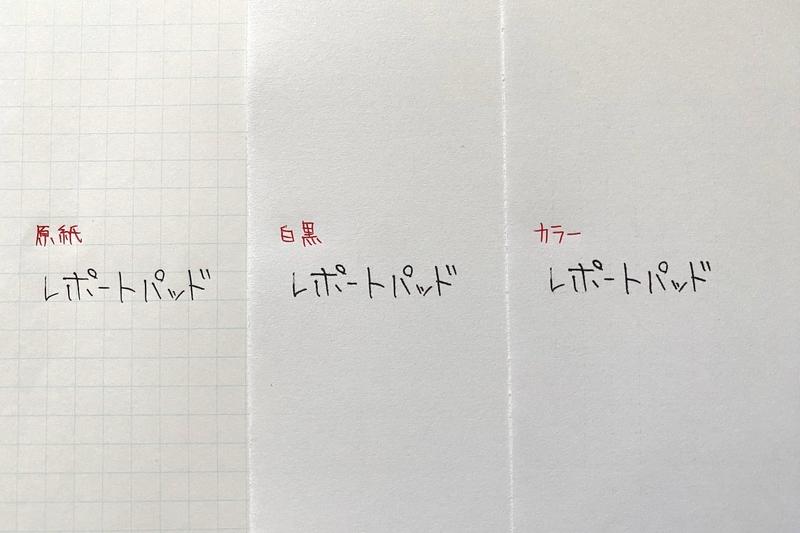 原紙
レポートパッド
白黒
レポートパッド
カラー
レポートパッド